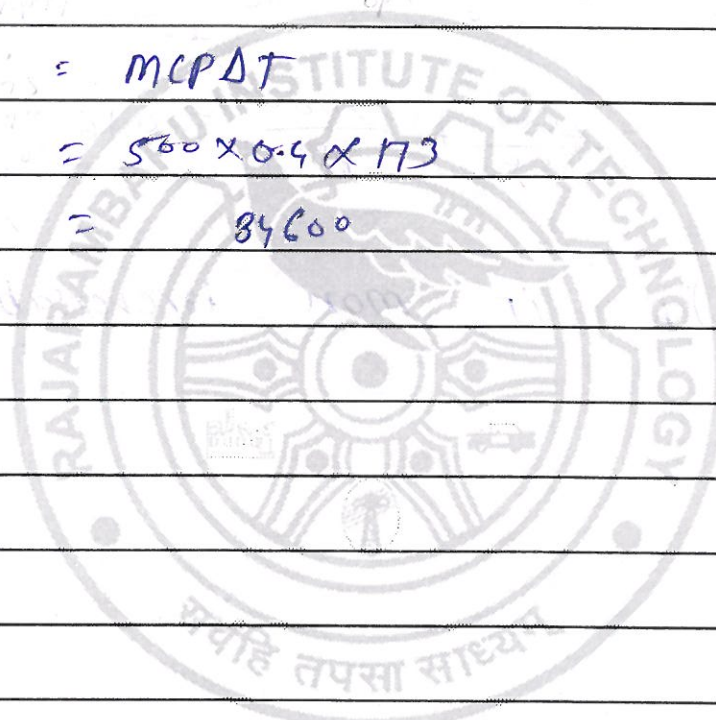 = MCPΔT
= 500 × 0.4 × 173
= 34600
RAJARAMBAPU INSTITUTE OF TECHNOLOGY
तपसा